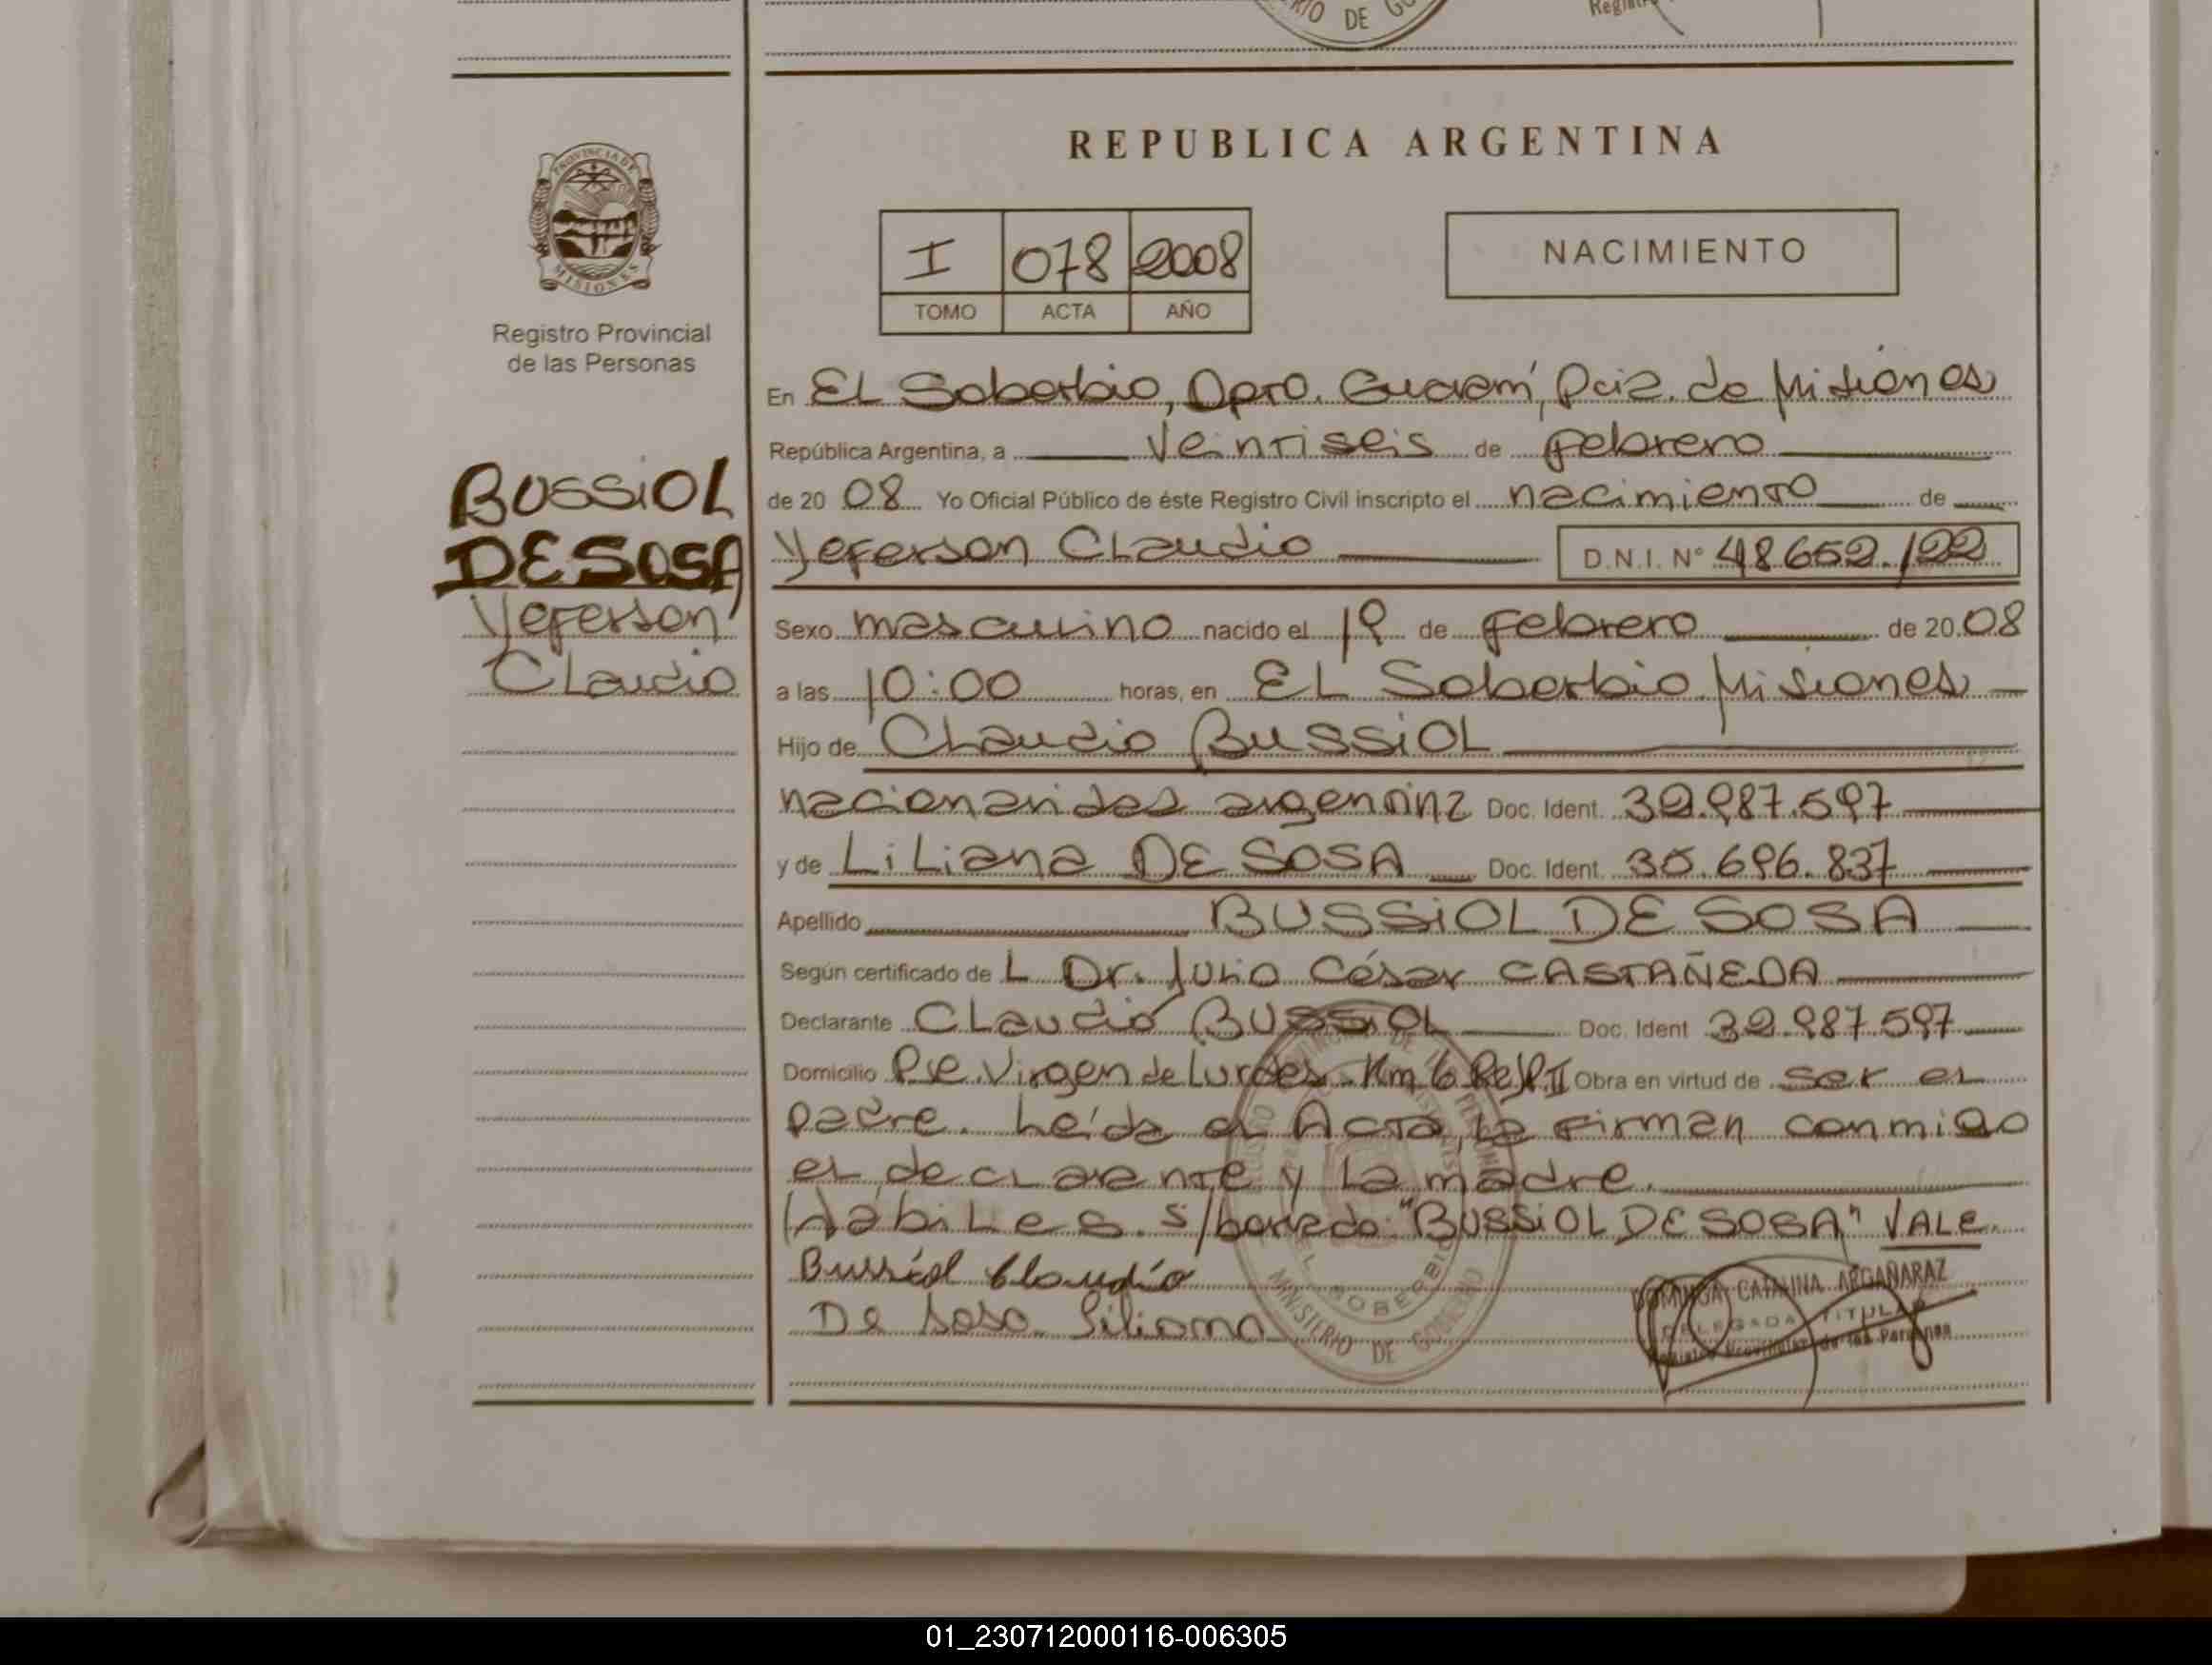 RIO DE GO
Registr
REPUBLICA ARGENTINA
PROVINCIA DE
MISIONES
Registro Provincial
de las Personas
I 078 2008
TOMO ACTA AÑO
NACIMIENTO
En EL Soberbio, Dpto. Guaraní, Pcia. de Misiones
República Argentina, a Veintiseis de febrero
de 20 08 Yo Oficial Público de éste Registro Civil inscripto el nacimiento de
BUSSiOL
DE SOSA
Yeferson
Claudio
Yeferson Claudio D.N.I. N° 48652.122
Sexo masculino nacido el 19 de febrero de 20 08
a las 10:00 horas, en EL Soberbio Misiones
Hijo de Claudio BUSSiOL
nacionalidad argentina Doc. Ident. 32.987.597
y de Liliana DE SOSA Doc. Ident. 35.696.837
Apellido BUSSiOL DE SOSA
Según certificado de L Dr. Julio César CASTAÑEDA
Declarante Claudio BUSSiOL Doc. Ident 32.987.597
Domicilio Pje. Virgen de Lurdes - Km 6 Obra en virtud de ser el
padre. Leída el Acta, la firman conmigo
el declarante y la madre.
Hábiles. s/borrado: "BUSSiOL DE SOSA" VALE.
Bussiol Claudio
De Sosa Liliana
EL SOBERBIO
MINISTERIO DE GOBIERNO
DOMINGA CATALINA ARGAÑARAZ
DELEGADA TITULAR
Registro Provincial de las Personas
01_230712000116-006305